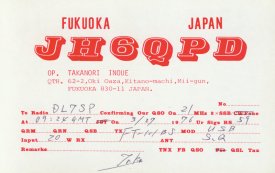 FUKUOKA JAPAN
JH6QPD
OP. TAKANORI INOUE
QTH. 62-2,Oki Oaza,Kitano-machi,Mii-gun,
FUKUOKA 830-11 JAPAN.
No.
To Radio DL7SP Confirming Our QSO On 21 MHz
At 09:24 GMT On 3/27 1976 Ur Sigs RS 59
QRM QRN QSB TX FT-101BS MOD USB
Input 20 W RX ANT S.Q
Remarks TNX FB QSO QSL Tax